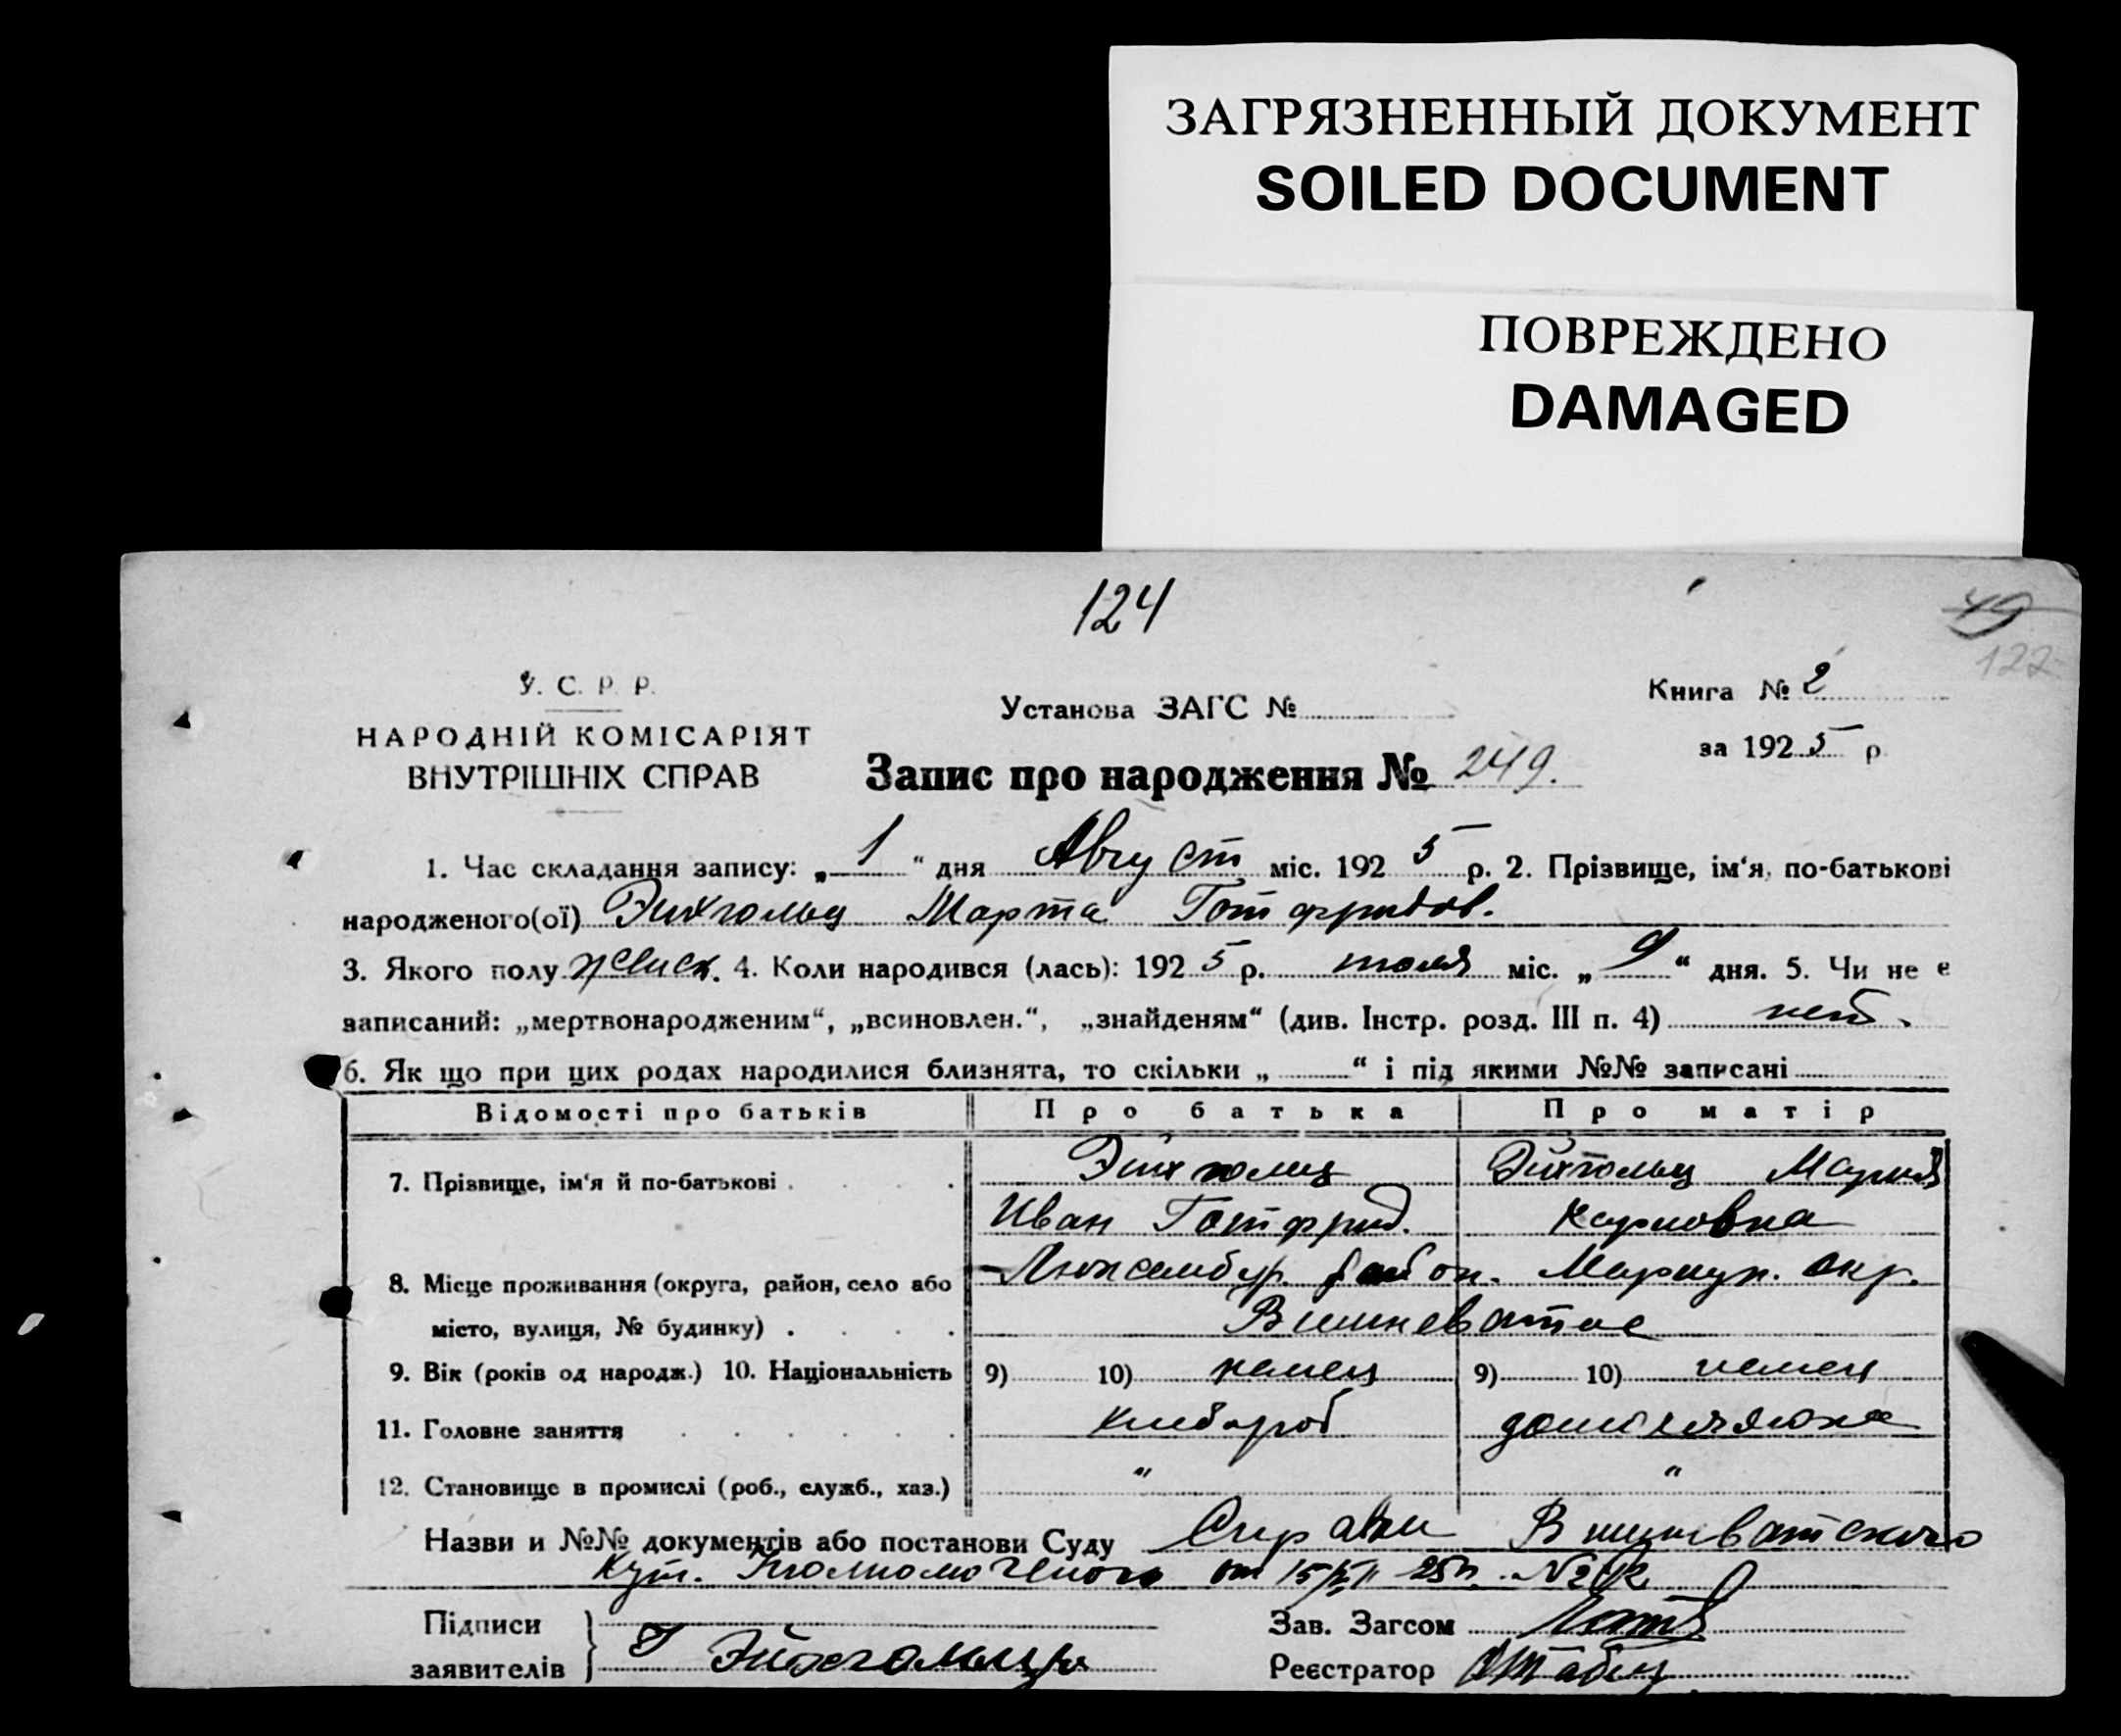 ЗАГРЯЗНЕННЫЙ ДОКУМЕНТ
SOILED DOCUMENT
ПОВРЕЖДЕНО
DAMAGED
124
49
122
У. С. Р. Р.
НАРОДНІЙ КОМІСАРІЯТ
ВНУТРІШНІХ СПРАВ
Установа ЗАГС №
Книга № 2
за 1925 р.
Запис про народження № 249.
1. Час складання запису: „1“ дня Август міс. 1925 р. 2. Прізвище, ім‘я, по-батькові
народженого(ої) Эйхгольц Марта Готфридов.
3. Якого полу женск. 4. Коли народився (лась): 1925 р. июля міс. „9“ дня. 5. Чи не є
записаний: „мертвонародженим“, „всиновлен.“, „знайденям“ (див. Інстр. розд. III п. 4) нет.
6. Як що при цих родах народилися близнята, то скільки „ “ і під якими №№ записані
Відомості про батьків Про батька Про матір
7. Прізвище, ім‘я й по-батькові Эйхгольц Эйхгольц Мария
Иван Готфрид. Карловна
8. Місце проживання (округа, район, село або Люксембур. район. Мариуп. окр.
місто, вулиця, № будинку) Вишневатое
9. Вік (років од народж.) 10. Національність 9) 10) немец 9) 10) немец
11. Головне заняття хлебороб
12. Становище в промислі (роб., служб., хаз.) " "
Назви и №№ документів або постанови Суду Справки
от 15/VII 25 г. №
Підписи
заявителів Эйхгольц
Зав. Загсом
Реєстратор